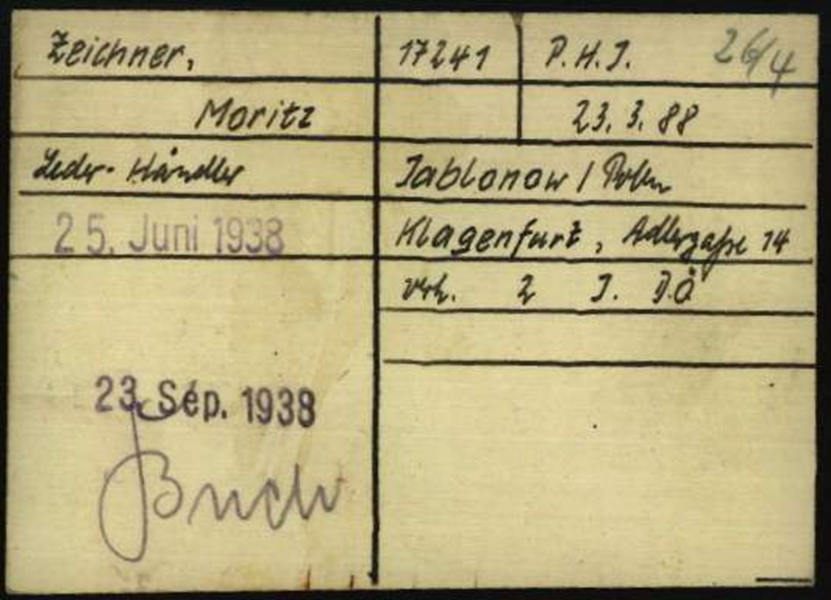 Zeichner, 17241 P.H.J. 26/4
Moritz 23. 3. 88
Leder-Händler Jablonow / Polen
25. Juni 1938 Klagenfurt, Adlergaße 14
verh. 2 J. D.Ö
23. Sep. 1938
Buch